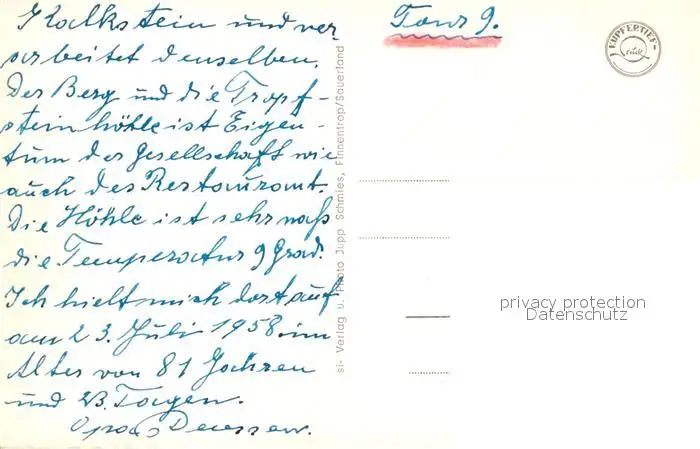 Kalkstein und ver-
arbeitet denselben.
Der Berg und die Tropf-
steinhöhle ist Eigen-
tum der Gesellschaft wie
auch das Restaurant.
Die Höhle ist sehr naß
die Temperatur 9 Grad.
Ich hielt mich dort auf
am 23. Juli 1958 im
Alter von 81 Jahren
und 23. Tagen.
Opa Deussen.
si- Verlag u. Photo Jupp Schmies, Finnentrop/Sauerland
Tour 9.
KUPFERTIEF-
druck
privacy protection
Datenschutz